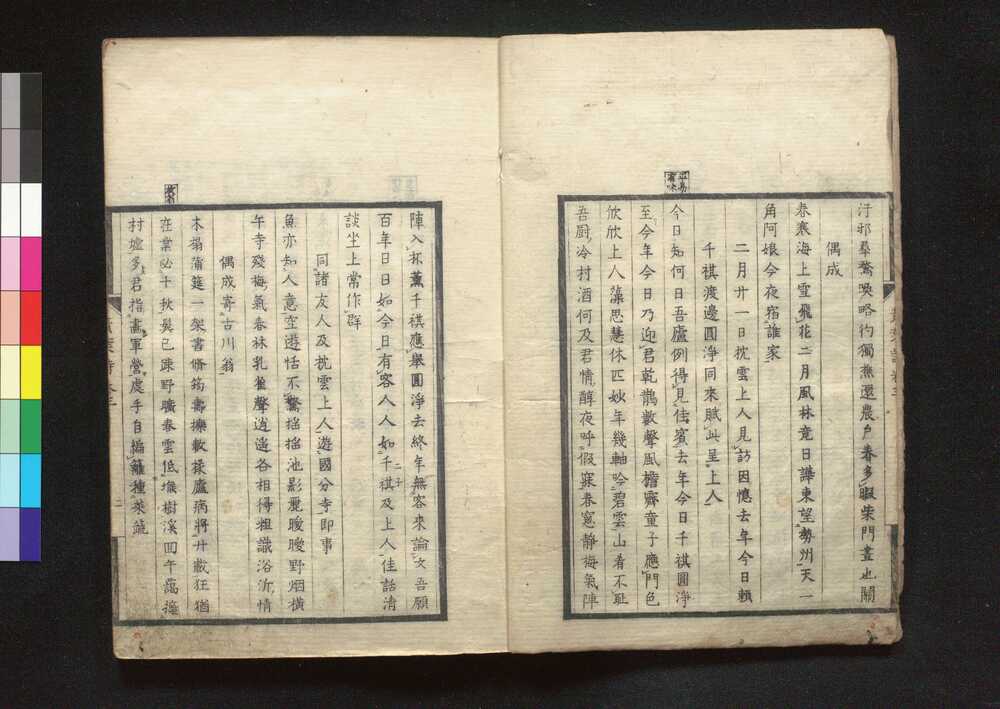 平易
有味
汙邪羣鷘喚略彴獨樵還農戶春多暇柴門晝也關
偶成
春寒海上雪飛花二月風林竟日譁東望勢州天一
角阿娘今夜宿誰家
二月廿一日枕雲上人見訪因憶去年今日賴
千祺渡邊圓淨同來賦此呈上人
今日知何日吾廬例得見佳賓去年今日千祺圓淨
至今年今日乃迎君乾鵲數聲風擔齊童子應門色
欣欣上人藻思慧休匹妙年幾軸吟碧雲山肴不耻
吾厨冷村酒何及君情醇夜呼假寐春窻靜梅氣陣
陣入杯薰千祺應舉圓淨去終年無客來論文吾願
百年日日如今日有客人人如千祺及上人佳話清
二子
談坐上常作群
同諸友人及枕雲上人遊國分寺即事
魚亦知人意空遊恬不驚搖搖池影麗曖曖野烟橫
午寺殘梅氣春林乳雀聲逍遙各相得粗識浴沂情
偶成寄古川翁
木榻蒲筵一架書脩筠壽櫟數椽廬病將廿載狂猶
在業必千秋冀已疎野曠春雲低墩樹溪回午靄擁
村墟多君指畫軍營處手自編籬種菜蔬